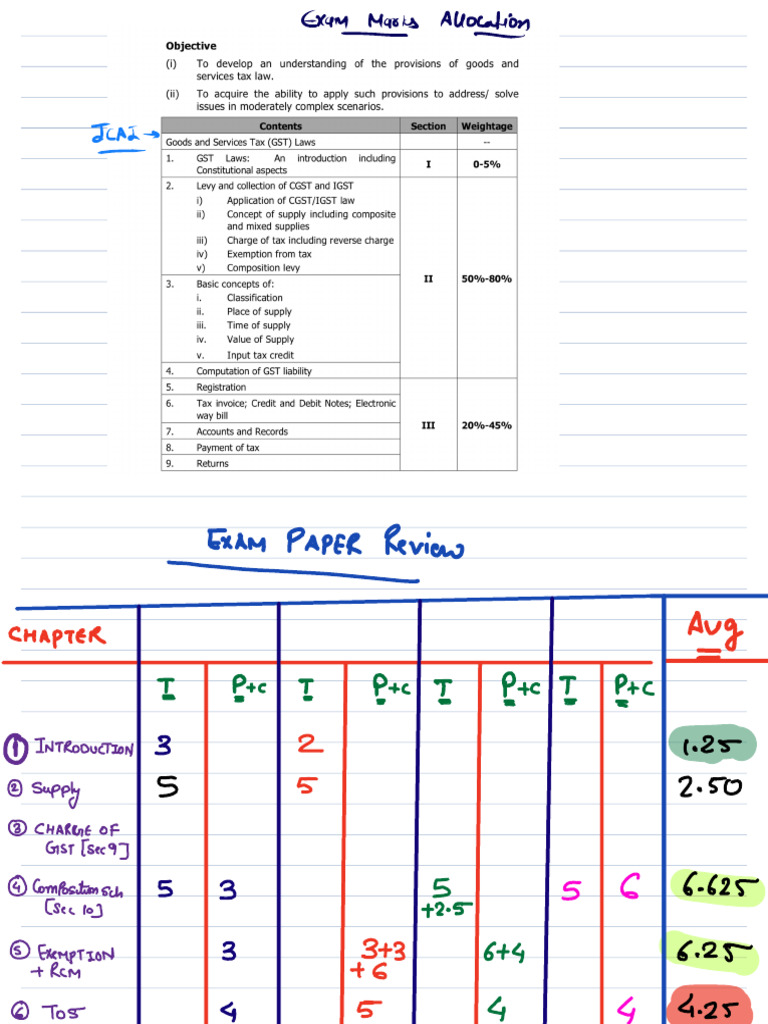 Exam Marks Allocation
Objective
(i) To develop an understanding of the provisions of goods and
services tax law.
(ii) To acquire the ability to apply such provisions to address/ solve
issues in moderately complex scenarios.
ICAI →
Contents Section Weightage
Goods and Services Tax (GST) Laws --
1. GST Laws: An introduction including
Constitutional aspects
I 0-5%
2. Levy and collection of CGST and IGST
i) Application of CGST/IGST law
ii) Concept of supply including composite
and mixed supplies
iii) Charge of tax including reverse charge
iv) Exemption from tax
v) Composition levy
3. Basic concepts of:
i. Classification
ii. Place of supply
iii. Time of supply
iv. Value of Supply
v. Input tax credit
4. Computation of GST liability
II 50%-80%
5. Registration
6. Tax invoice; Credit and Debit Notes; Electronic
way bill
7. Accounts and Records
8. Payment of tax
9. Returns
III 20%-45%
EXAM PAPER Review
CHAPTER Aug
T P+C T P+C T P+C T P+C
① INTRODUCTION 3 2 1.25
② Supply 5 5 2.50
③ CHARGE OF
GST [Sec 9]
④ Composition Sch 5 3 5 5 6 6.625
[Sec 10] +2.5
⑤ EXEMPTION 3 3+3 6+4 6.25
+ RCM +6
⑥ TOS 4 5 4 4 4.25